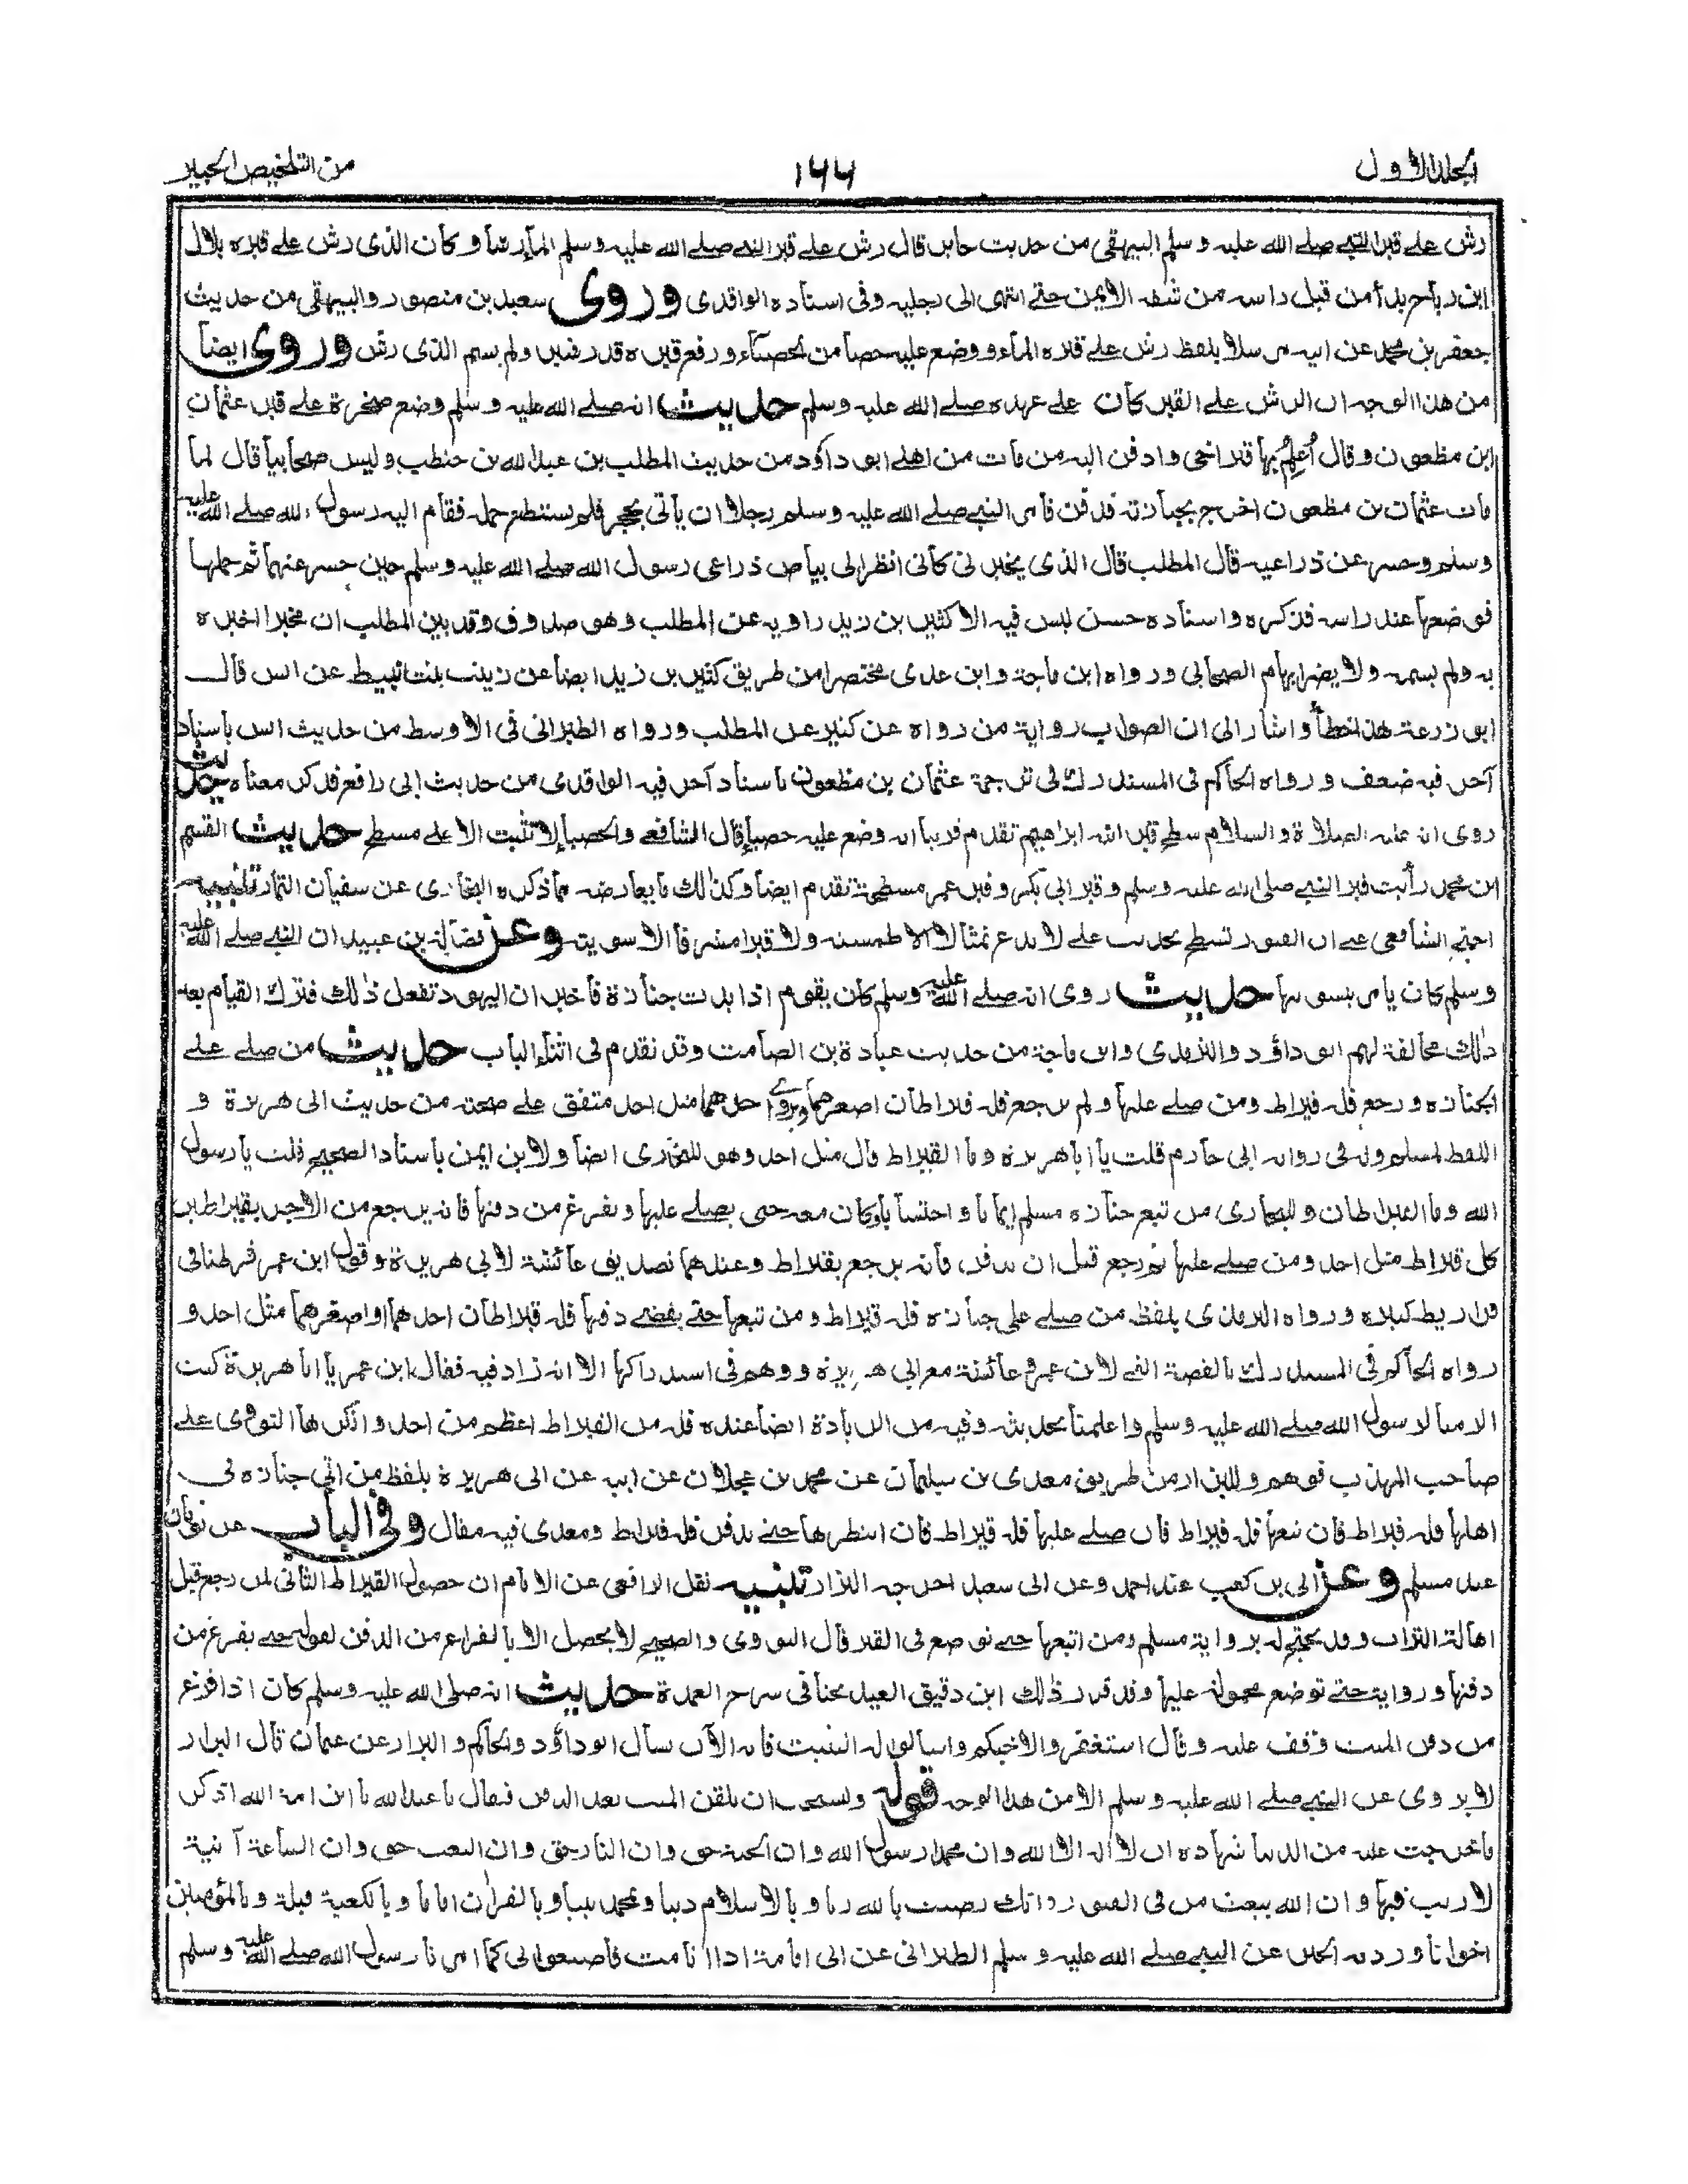 المجلد الاول
١٦٦
من التلخيص الحبير
رش علے قبر النبي صلے الله عليه وسلم البيهقي من حديث جابر قال رش علے قبر النبي صلے الله عليه وسلم الماء رشا وكان الذى رش علے قبره بلال
ابن رباح بدأ من قبل راسه من شقه الايمن حتے انتهى الى رجليه وفى اسناده الواقدى وروى سعيد بن منصور والبيهقي من حديث
جعفر بن محمد عن ابيه مرسلا بلفظ رش علے قبره الماء ووضع عليه حصا من الحصباء ورفع قبره قدر شبر ولم يسم الذى رش وروى ايضا
من هذا الوجه ان الرش علے القبر كان علے عهده صلے الله عليه وسلم حديث انه صلے الله عليه وسلم وضع صخرة علے قبر عثمان
ابن مظعون وقال أُعلِمُ بها قبر اخى وادفن اليه من مات من اهلے ابو داؤد من حديث المطلب بن عبد الله بن حنطب وليس صحابيا قال لما
مات عثمان بن مظعون اخرج بجنازته فدفن فامر النبي صلے الله عليه وسلم رجلا ان ياتى بحجر فلم يستطع حمله فقام اليه رسول الله صلے الله عليه
وسلم وحسر عن ذراعيه قال المطلب قال الذى يخبرنى كانى انظر الى بياض ذراعى رسول الله صلے الله عليه وسلم حين حسر عنهما ثم حملها
فوضعها عند راسه فذكره واسناده حسن ليس فيه الا كثير بن زيد راويه عن المطلب وهو صدوق وقد بين المطلب ان مخبرا اخبره
به ولم يسمه ولا يضر ابهام الصحابى ورواه ابن ماجة وابن عدى مختصرا من طريق كثير بن زيد ايضا عن زينب بنت نبيط عن انس قال
ابو زرعة هذا خطأ واشار الى ان الصواب رواية من رواه عن كثير عن المطلب ورواه الطبرانى فى الاوسط من حديث انس باسناد
آخر فيه ضعف ورواه الحاكم فى المستدرك فى ترجمة عثمان بن مظعون باسناد آخر فيه الواقدى من حديث ابى رافع فذكر معناه حديث
روى انه عليه الصلاة والسلام سطح قبر ابنه ابراهيم تقدم قريبا انه وضع عليه حصباء قال الشافعے والحصباء لا تثبت الا علے مسطح حديث القسم
ابن محمد رأيت قبر النبي صلى الله عليه وسلم وقبر ابى بكر وقبر عمر مسطحة تقدم ايضا وكذلك ما يعارضه مما ذكره البخارى عن سفيان التمار تنبيه
احتج الشافعى علے ان القبور تسطح بحديث علے لا تدع تمثالا الا طمسته ولا قبرا مشرفا الا سويته وعن فضالة بن عبيد ان النبي صلے الله عليه
وسلم كان يامر بتسويتها حديث روى انه صلے الله عليه وسلم كان يقوم اذا بدت جنازة فاخبر ان اليهود تفعل ذلك فترك القيام بعد
ذلك مخالفة لهم ابو داؤد والترمذى وابن ماجة من حديث عبادة بن الصامت وقد تقدم فى اثناء الباب حديث من صلے علے
الجنازه ورجع فله قيراط ومن صلے عليها ولم يرجع فله قيراطان اصغرهما ويروے احدهما مثل احد متفق علے صحته من حديث ابى هريرة و
اللفظ لمسلم وله فى رواية ابى حازم قلت يا ابا هريرة وما القيراط قال مثل احد وهو للبخارى ايضا ولابن ايمن باسناد الصحيح قلت يا رسول
الله وما القيراطان وللبخارى من تبع جنازه مسلم ايمانا واحتسابا وكان معه حتى يصلے عليها ويفرغ من دفنها فانه يرجع من الاجر بقيراطين
كل قيراط مثل احد ومن صلے عليها ثم رجع قبل ان تدفن فانه يرجع بقيراط وعندهما تصديق عائشة لابى هريرة وقول ابن عمر فرطنا فى
قراريط كثيره ورواه الترمذى بلفظ من صلے على جنازه فله قيراط ومن تبعها حتے يقضے دفنها فله قيراطان احدهما او اصغرهما مثل احد و
رواه الحاكم فى المستدرك بالقصة التے لابن عمر وعائشة مع ابى هريرة ووهم فى استدراكها الا انه زاد فيه فقال ابن عمر يا ابا هريرة كنت
الزمنا لرسول الله صلے الله عليه وسلم واعلمنا بحديثه وفيه من الزيادة ايضا عنده فله من القيراط اعظم من احد وانكرها النووى علے
صاحب المهذب فوهم وللبزار من طريق معدى بن سليمان عن محمد بن عجلان عن ابيه عن ابى هريرة بلفظ من اتى جنازه فى
اهلها فله قيراط فان تبعها فله قيراط فان صلے عليها فله قيراط فان انتظرها حتے تدفن فله قيراط ومعدى فيه مقال وفى الباب عن ثوبان
عند مسلم وعن ابى بن كعب عند احمد وعن ابى سعيد اخرجه البزار تنبيه نقل الرافعى عن الامام ان حصول القيراط الثانى لمن رجع قبل
اهالة التراب وقد يحتج له برواية مسلم ومن اتبعها حتے توضع فى القبر قال النووى والصحيح لا يحصل الا بالفراغ من الدفن لقوله حتے يفرغ من
دفنها ورواية حتے توضع محمولة عليها وقد قرر ذلك ابن دقيق العيد بحثا فى شرح العمدة حديث انه صلى الله عليه وسلم كان اذا فرغ
من دفن الميت وقف عليه وقال استغفروا لاخيكم واسألوا له التثبيت فانه الآن يسال ابو داؤد والحاكم والبزار عن عثمان قال البزار
لا يروى عن النبي صلے الله عليه وسلم الا من هذا الوجه قوله ويستحب ان يلقن الميت بعد الدفن فيقال يا عبد الله يا ابن امة الله اذكر
ما خرجت عليه من الدنيا شهاده ان لا اله الا الله وان محمدا رسول الله وان الجنة حق وان النار حق وان البعث حق وان الساعة آتية
لا ريب فيها وان الله يبعث من فى القبور وانك رضيت بالله ربا وبالاسلام دينا وبمحمد نبيا وبالقرآن اماما وبالكعبة قبلة وبالمؤمنين
اخوانا ورد به الخبر عن النبي صلے الله عليه وسلم الطبرانى عن ابى امامة اذا انا مت فاصنعوا بى كما امرنا رسول الله صلے الله عليه وسلم